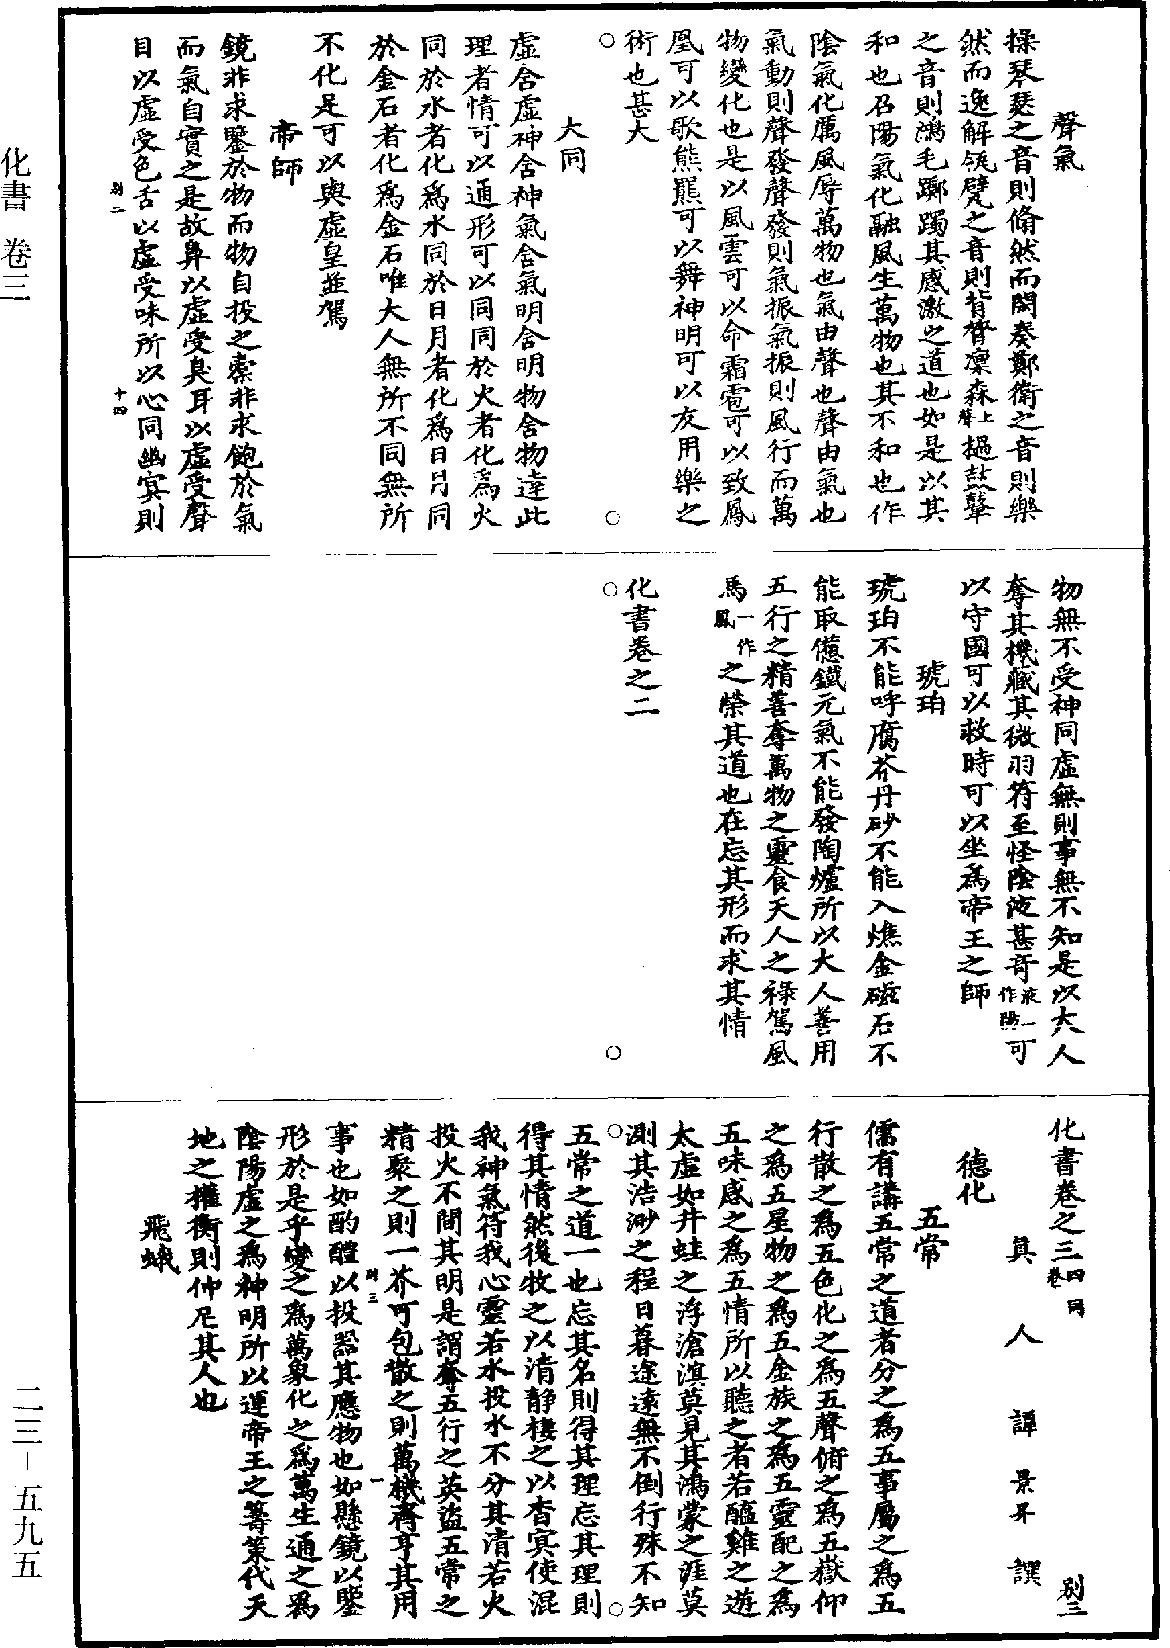 聲氣
操琴瑟之音則翛然而閑奏鄭衛之音則樂
然而逸解瓴甓之音則背膂凜森上聲撾鼓鼙
之音則鴻毛躑躅其感激之道也如是以其
和也召陽氣化融風生萬物也其不和也作
陰氣化厲風辱萬物也氣由聲也聲由氣也
氣動則聲發聲發則氣振氣振則風行而萬
物變化也是以風雲可以命霜雹可以致鳳
凰可以歌熊羆可以舞神明可以友用樂之
術也甚大
大同
虛含虛神含神氣含氣明含明物含物達此
理者情可以通形可以同同於火者化為火
同於水者化為水同於日月者化為日月同
於金石者化為金石唯大人無所不同無所
不化是可以與虛皇並駕
帝師
鏡非求鑒於物而物自投之橐非求飽於氣
而氣自實之是故鼻以虛受臭耳以虛受聲
目以虛受色舌以虛受味所以心同幽冥則
別二
十四
物無不受神同虛無則事無不知是以大人
奪其機藏其微羽符至怪陰液甚奇液一作陽可
以守國可以救時可以坐為帝王之師
琥珀
琥珀不能呼腐芥丹砂不能入燋金磁石不
能取憊鐵元氣不能發陶爐所以大人善用
五行之精善奪萬物之靈食天人之祿駕風
馬一作鳳之榮其道也在忘其形而求其情
化書卷之二
化書卷之三四同卷
別三
真人譚景昇譔
德化
五常
儒有講五常之道者分之為五事屬之為五
行散之為五色化之為五聲俯之為五嶽仰
之為五星物之為五金族之為五靈配之為
五味感之為五情所以聽之者若醯雞之遊
太虛如井蛙之浮滄溟莫見其鴻濛之涯莫
測其浩渺之程日暮途遠無不倒行殊不知
五常之道一也忘其名則得其理忘其理則
得其情然後牧之以清靜棲之以杳冥使混
我神氣符我心靈若水投水不分其清若火
投火不問其明是謂奪五行之英盜五常之
精聚之則一芥可包散之則萬機齊亨其用
別三
一
事也如酌醴以投器其應物也如懸鏡以鑒
形於是乎變之為萬象化之為萬生通之為
陰陽虛之為神明所以運帝王之籌策代天
地之權衡則仲尼其人也
飛蛾
化書 卷三
二三－五九五